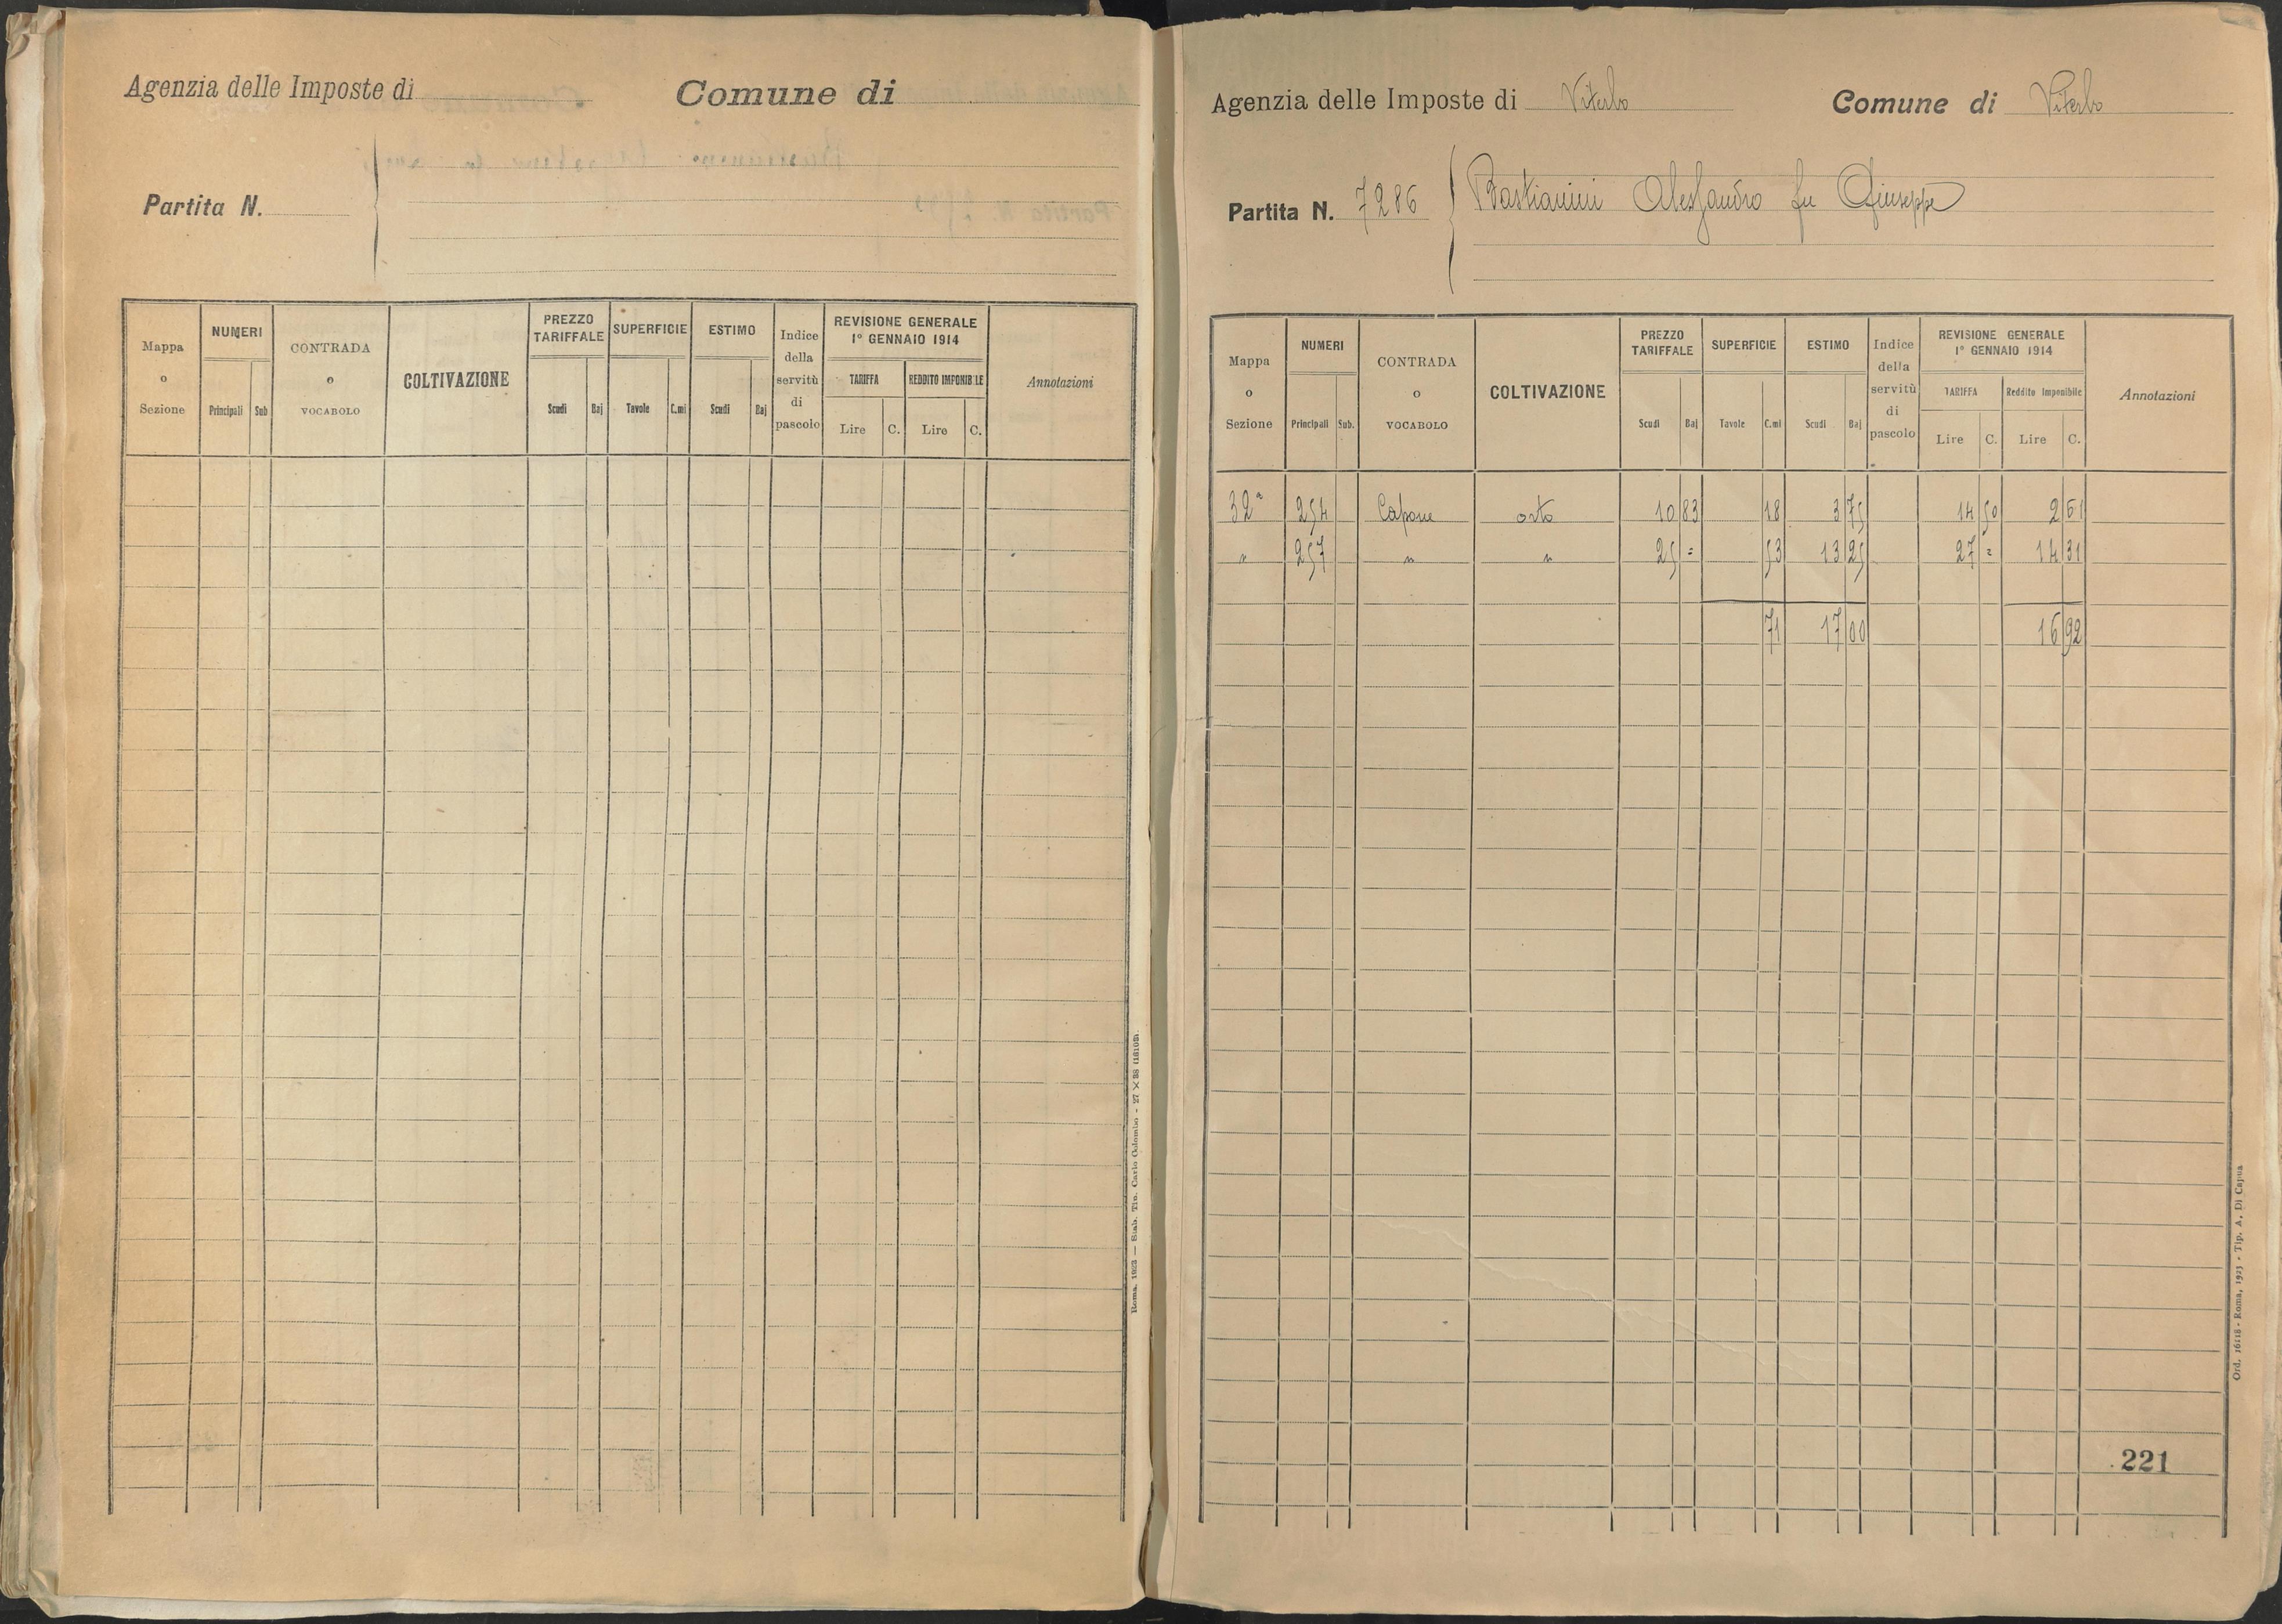 Agenzia delle Imposte di Comune di
Partita N.
Mappa o Sezione NUMERI Principali Sub CONTRADA o VOCABOLO COLTIVAZIONE PREZZO TARIFFALE Scudi Baj SUPERFICIE Tavole C.mi ESTIMO Scudi Baj Indice della servitù di pascolo REVISIONE GENERALE 1° GENNAIO 1914 TARIFFA Lire C. REDDITO IMPONIBILE Lire C. Annotazioni
Roma, 1923 — Stab. Tip. Carlo Colombo - 27 × 38 (1810m.
Agenzia delle Imposte di Viterbo Comune di Viterbo
Partita N. 7286 Bastianini Alessandro fu Giuseppe
Mappa o Sezione NUMERI Principali Sub. CONTRADA o VOCABOLO COLTIVAZIONE PREZZO TARIFFALE Scudi Baj SUPERFICIE Tavole C.mi ESTIMO Scudi Baj Indice della servitù di pascolo REVISIONE GENERALE 1° GENNAIO 1914 TARIFFA Lire C. Reddito Imponibile Lire C. Annotazioni
32ª 254 Capone orto 10 83 18 3 75 14 50 2 61
" 257 " " 25 = 53 13 25 27 = 14 31
71 17 00 16 92
221
Ord. 16118 - Roma, 1923 - Tip. A. Di Capua